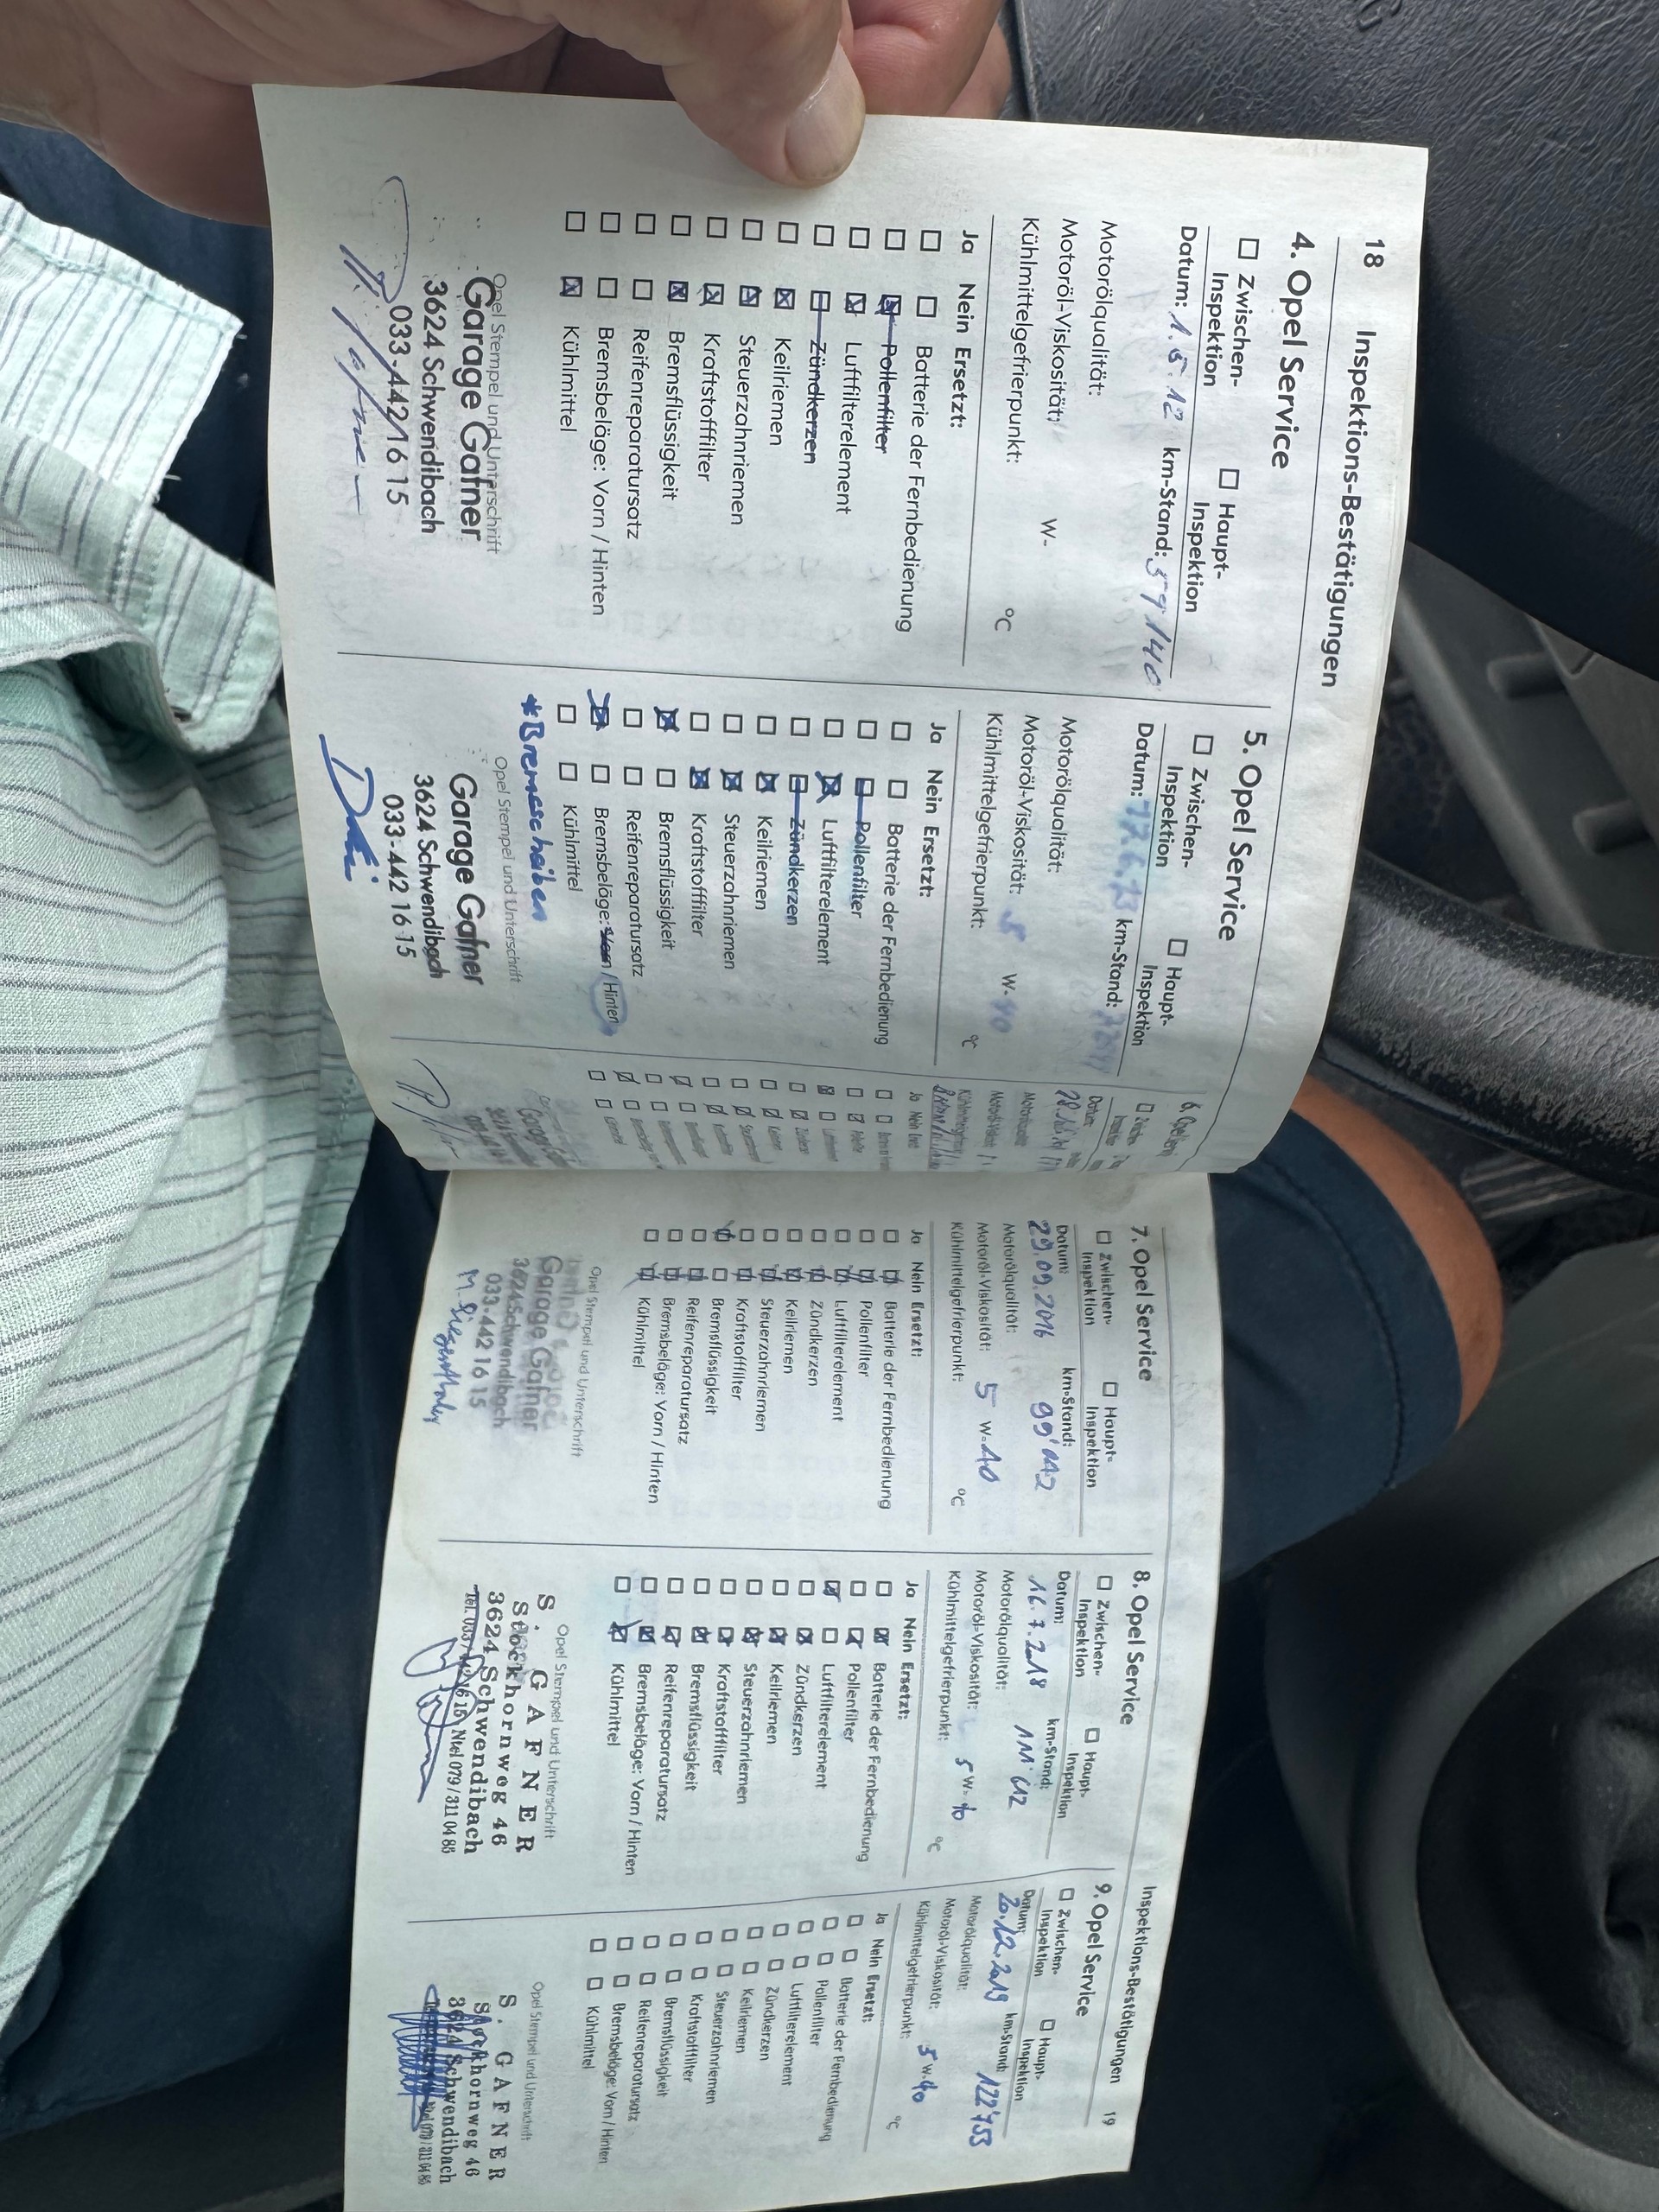 18 Inspektions-Bestätigungen
4. Opel Service
Zwischen-Inspektion
Haupt-Inspektion
Datum: km-Stand: 59.140
Motorölqualität:
Motoröl-Viskosität: W-
Kühlmittelgefrierpunkt: °C
Ja Nein Ersetzt:
Batterie der Fernbedienung
Pollenfilter
Luftfilterelement
Zündkerzen
Keilriemen
Steuerzahnriemen
Kraftstofffilter
Bremsflüssigkeit
Reifenreparatursatz
Bremsbeläge: Vorn / Hinten
Kühlmittel
Opel Stempel und Unterschrift
Garage Gafner
3624 Schwendibach
033-442 16 15
5. Opel Service
Zwischen-Inspektion
Haupt-Inspektion
Datum: km-Stand:
Motorölqualität:
Motoröl-Viskosität: 5 W-40
Kühlmittelgefrierpunkt: °C
Ja Nein Ersetzt:
Batterie der Fernbedienung
Pollenfilter
Luftfilterelement
Zündkerzen
Keilriemen
Steuerzahnriemen
Kraftstofffilter
Bremsflüssigkeit
Reifenreparatursatz
Bremsbeläge: Vorn / Hinten
Kühlmittel
*Bremsscheiben
Opel Stempel und Unterschrift
Garage Gafner
3624 Schwendibach
033-442 16 15
7. Opel Service
Zwischen-Inspektion
Haupt-Inspektion
Datum: km-Stand:
29.09.2016 99'142
Motorölqualität:
Motoröl-Viskosität: 5 W-40
Kühlmittelgefrierpunkt: °C
Ja Nein Ersetzt:
Batterie der Fernbedienung
Pollenfilter
Luftfilterelement
Zündkerzen
Keilriemen
Steuerzahnriemen
Kraftstofffilter
Bremsflüssigkeit
Reifenreparatursatz
Bremsbeläge: Vorn / Hinten
Kühlmittel
Opel Stempel und Unterschrift
Garage Gafner
3624 Schwendibach
033-442 16 15
M. Siegenthaler
8. Opel Service
Zwischen-Inspektion
Haupt-Inspektion
Datum: km-Stand:
16.7.2018
Motorölqualität:
Motoröl-Viskosität: 5 W-40
Kühlmittelgefrierpunkt: °C
Ja Nein Ersetzt:
Batterie der Fernbedienung
Pollenfilter
Luftfilterelement
Zündkerzen
Keilriemen
Steuerzahnriemen
Kraftstofffilter
Bremsflüssigkeit
Reifenreparatursatz
Bremsbeläge: Vorn / Hinten
Kühlmittel
Opel Stempel und Unterschrift
S. GAFNER
Stockhornweg 46
3624 Schwendibach
Tel. 033/442 16 15 Ntel 079/311 04 85
Inspektions-Bestätigungen 19
9. Opel Service
Zwischen-Inspektion
Haupt-Inspektion
Datum: km-Stand:
20.12.2019 122'753
Motorölqualität:
Motoröl-Viskosität: 5 W-40
Kühlmittelgefrierpunkt: °C
Ja Nein Ersetzt:
Batterie der Fernbedienung
Pollenfilter
Luftfilterelement
Zündkerzen
Keilriemen
Steuerzahnriemen
Kraftstofffilter
Bremsflüssigkeit
Reifenreparatursatz
Bremsbeläge: Vorn / Hinten
Kühlmittel
Opel Stempel und Unterschrift
S. GAFNER
Stockhornweg 46
3624 Schwendibach